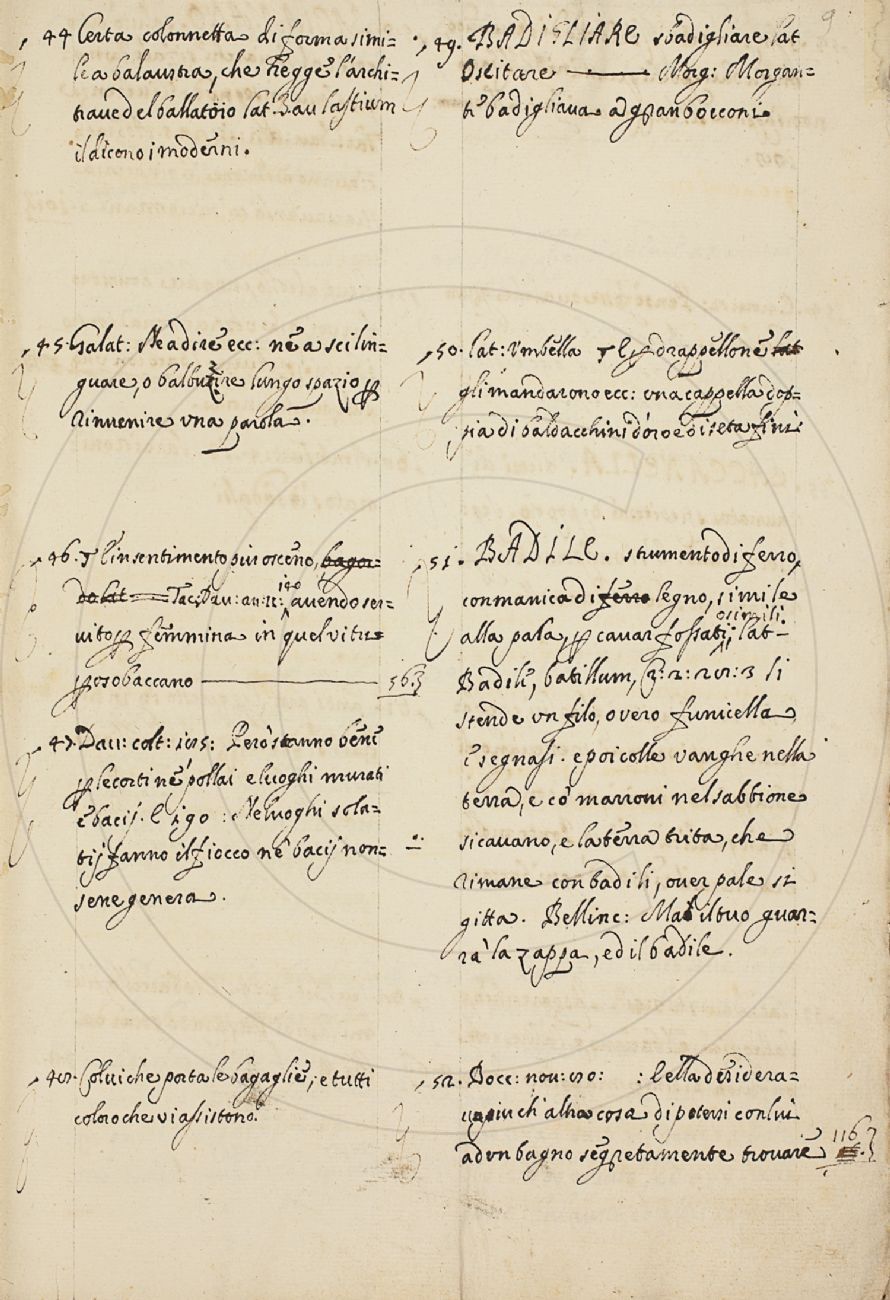 9
44 Certa colonnetta di forma simi=
le a balaustra, che regge l'archi=
trave del ballatoio lat. Balaustium
il dicono i moderni.
45. Galat: Ne a dire ecc: nè a scilin=
guare, o balbutire lungo spazio ꝑ
rinvenire una parola.
46. ¶ E in sentimento più osceno, bagor=
do lat Tac: Dav: an: 11: 140 avendo ser=
vito ꝑ femmina in quel vitu=
ꝑoso baccano 563
47. Dav: colt: 185: Però stanno bene
ꝑ le corti nè pollai e luoghi murati
e bacìj. E 190: Ne luoghi sola=
tìj fanno il fiocco ne bacìj non=
se ne genera.
48. Colui che porta le bagaglie, e tutti
coloro che vi assistono.
49. BADIGLIARE sbadigliare lat
Oscitare Morg: Morgan=
te badigliava a gran bocconi
50. lat: Umbella ¶ E ꝑ drappellone lat
gli mandarono ecc: una cappella dop=
pia di baldacchini d'oro e di seta fini
51. BADILE. strumento di ferro,
con manica di ferro legno, simile
alla pala, ꝑ cavar fossati, o simili, lat=
Badile, batillum, Cr: 2: 21: 3 si
stende un filo, overo funicella,
e segnasi. e poi colle vanghe nella
terra, e co' marroni nel sabbione
si cavano, e la terra trita, che
rimane con badili, over pale si
gitta. Bellinc: Ma il tuo guar=
rà la zappa, ed il badile.
52. Bocc: nov: 80: : E ella desidera=
va più ch'altra cosa di potersi con lui
ad un bagno segretamente trovare 116